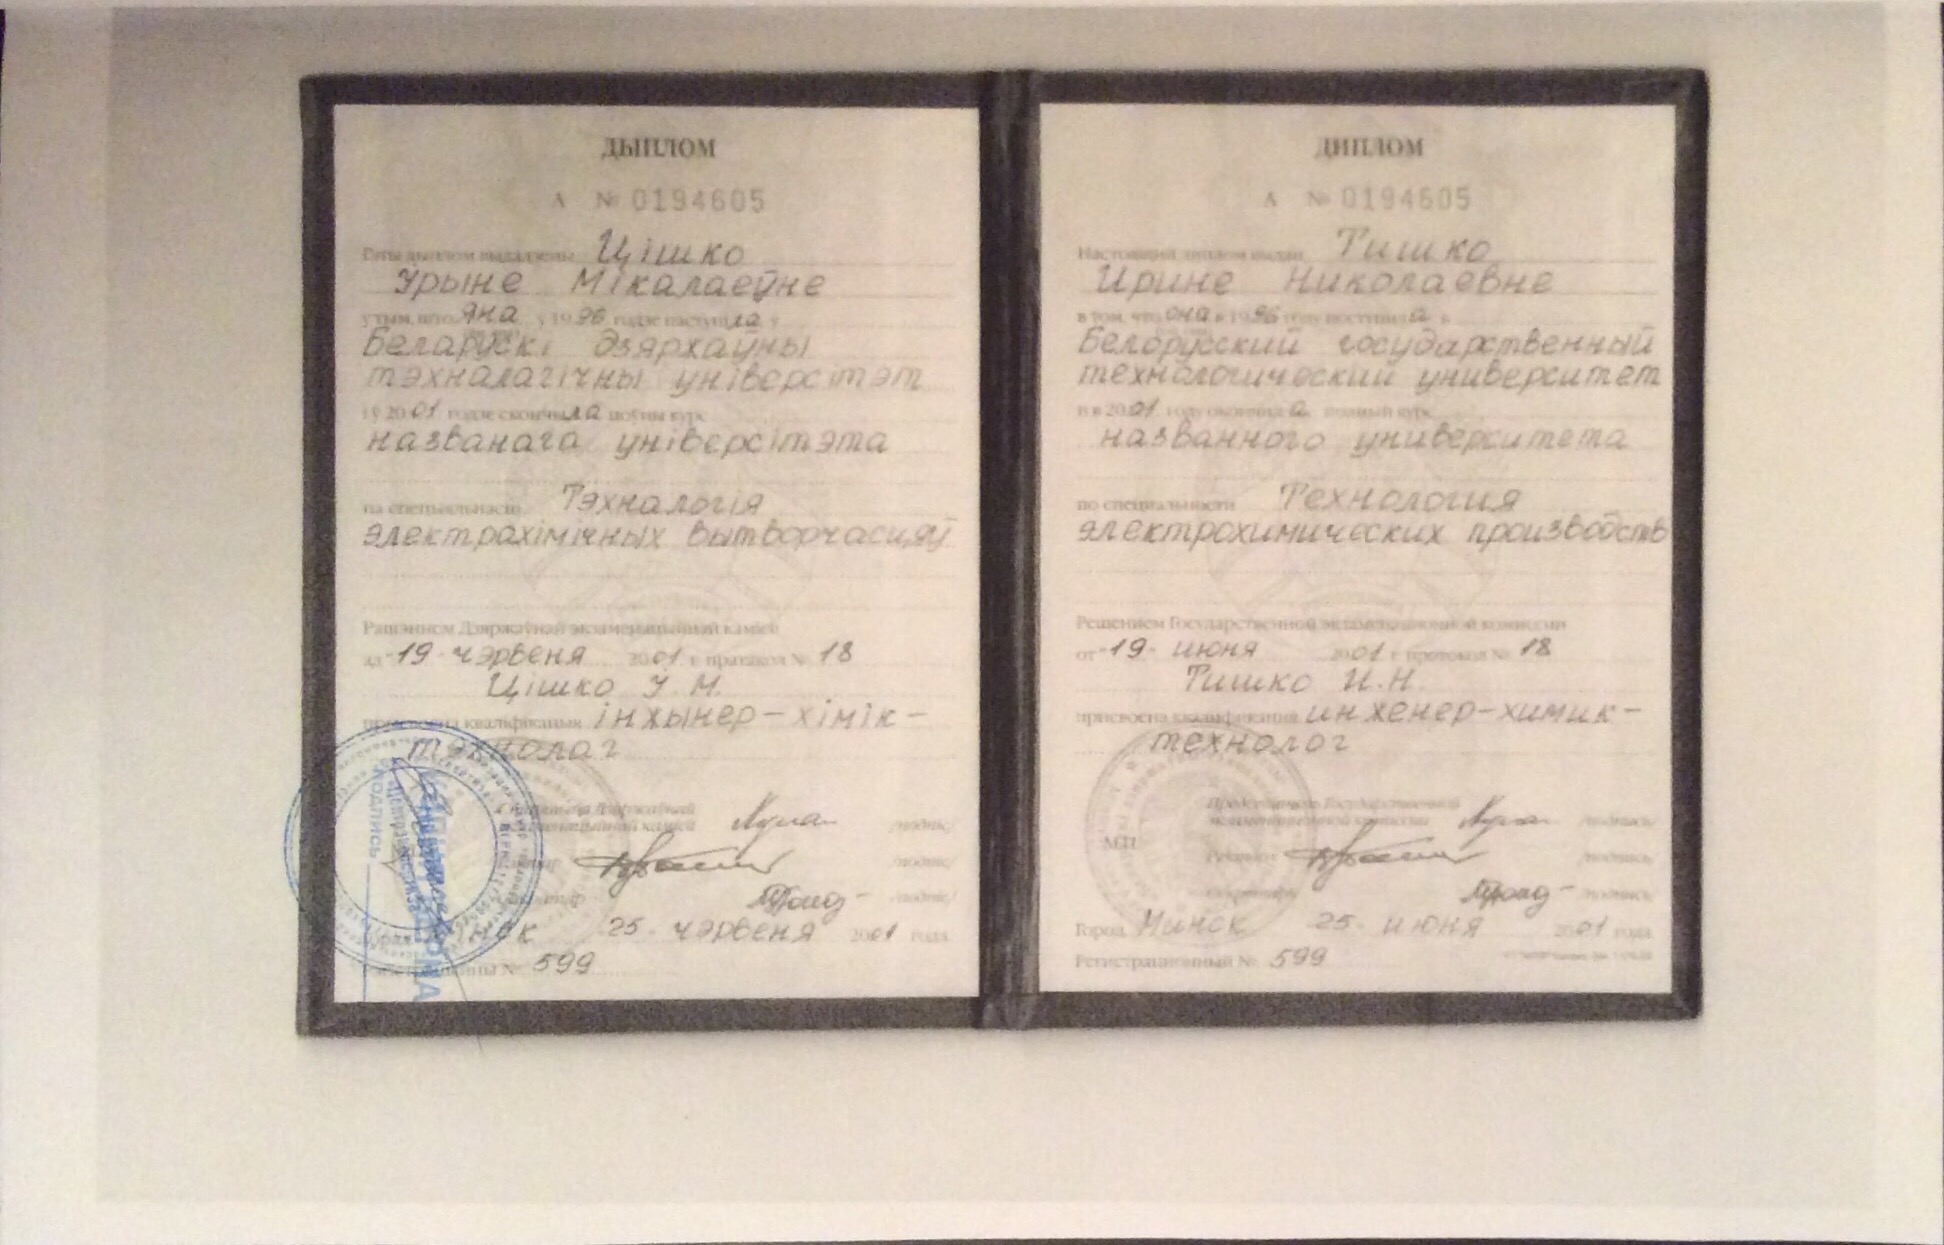 ДЫПЛОМ
А № 0194605
Гэты дыплом выдадзены Цішко
Ірыне Мікалаеўне
у тым, што яна у 1996 годзе паступіла у
Беларускі дзяржаўны
тэхналагічны універсітэт
і у 2001 годзе скончыла поўны курс
названага універсітэта
па спецыяльнасці Тэхналогія
электрахімічных вытворчасцяў
Рашэннем Дзяржаўнай экзаменацыйнай камісіі
ад "19" чэрвеня 2001 г. пратакол № 18
Цішко І. М.
прысвоена кваліфікацыя інжынер-хімік-
тэхнолаг
Дзяржаўнай
камісіі /подпіс/
/подпіс/
/подпіс/
25 чэрвеня 2001 года
№ 599
Подпись
ДИПЛОМ
А № 0194605
Настоящий диплом выдан Тишко
Ирине Николаевне
в том, что она в 1996 году поступила в
Белорусский государственный
технологический университет
и в 2001 году окончила полный курс
названного университета
по специальности Технология
электрохимических производств
Решением Государственной экзаменационной комиссии
от "19" июня 2001 г. протокол № 18
Тишко И.Н.
присвоена квалификация инженер-химик-
технолог
Председатель Государственной
экзаменационной комиссии /подпись/
М.П. Ректор /подпись/
Секретарь /подпись/
Город Минск 25 июня 2001 года
Регистрационный № 599